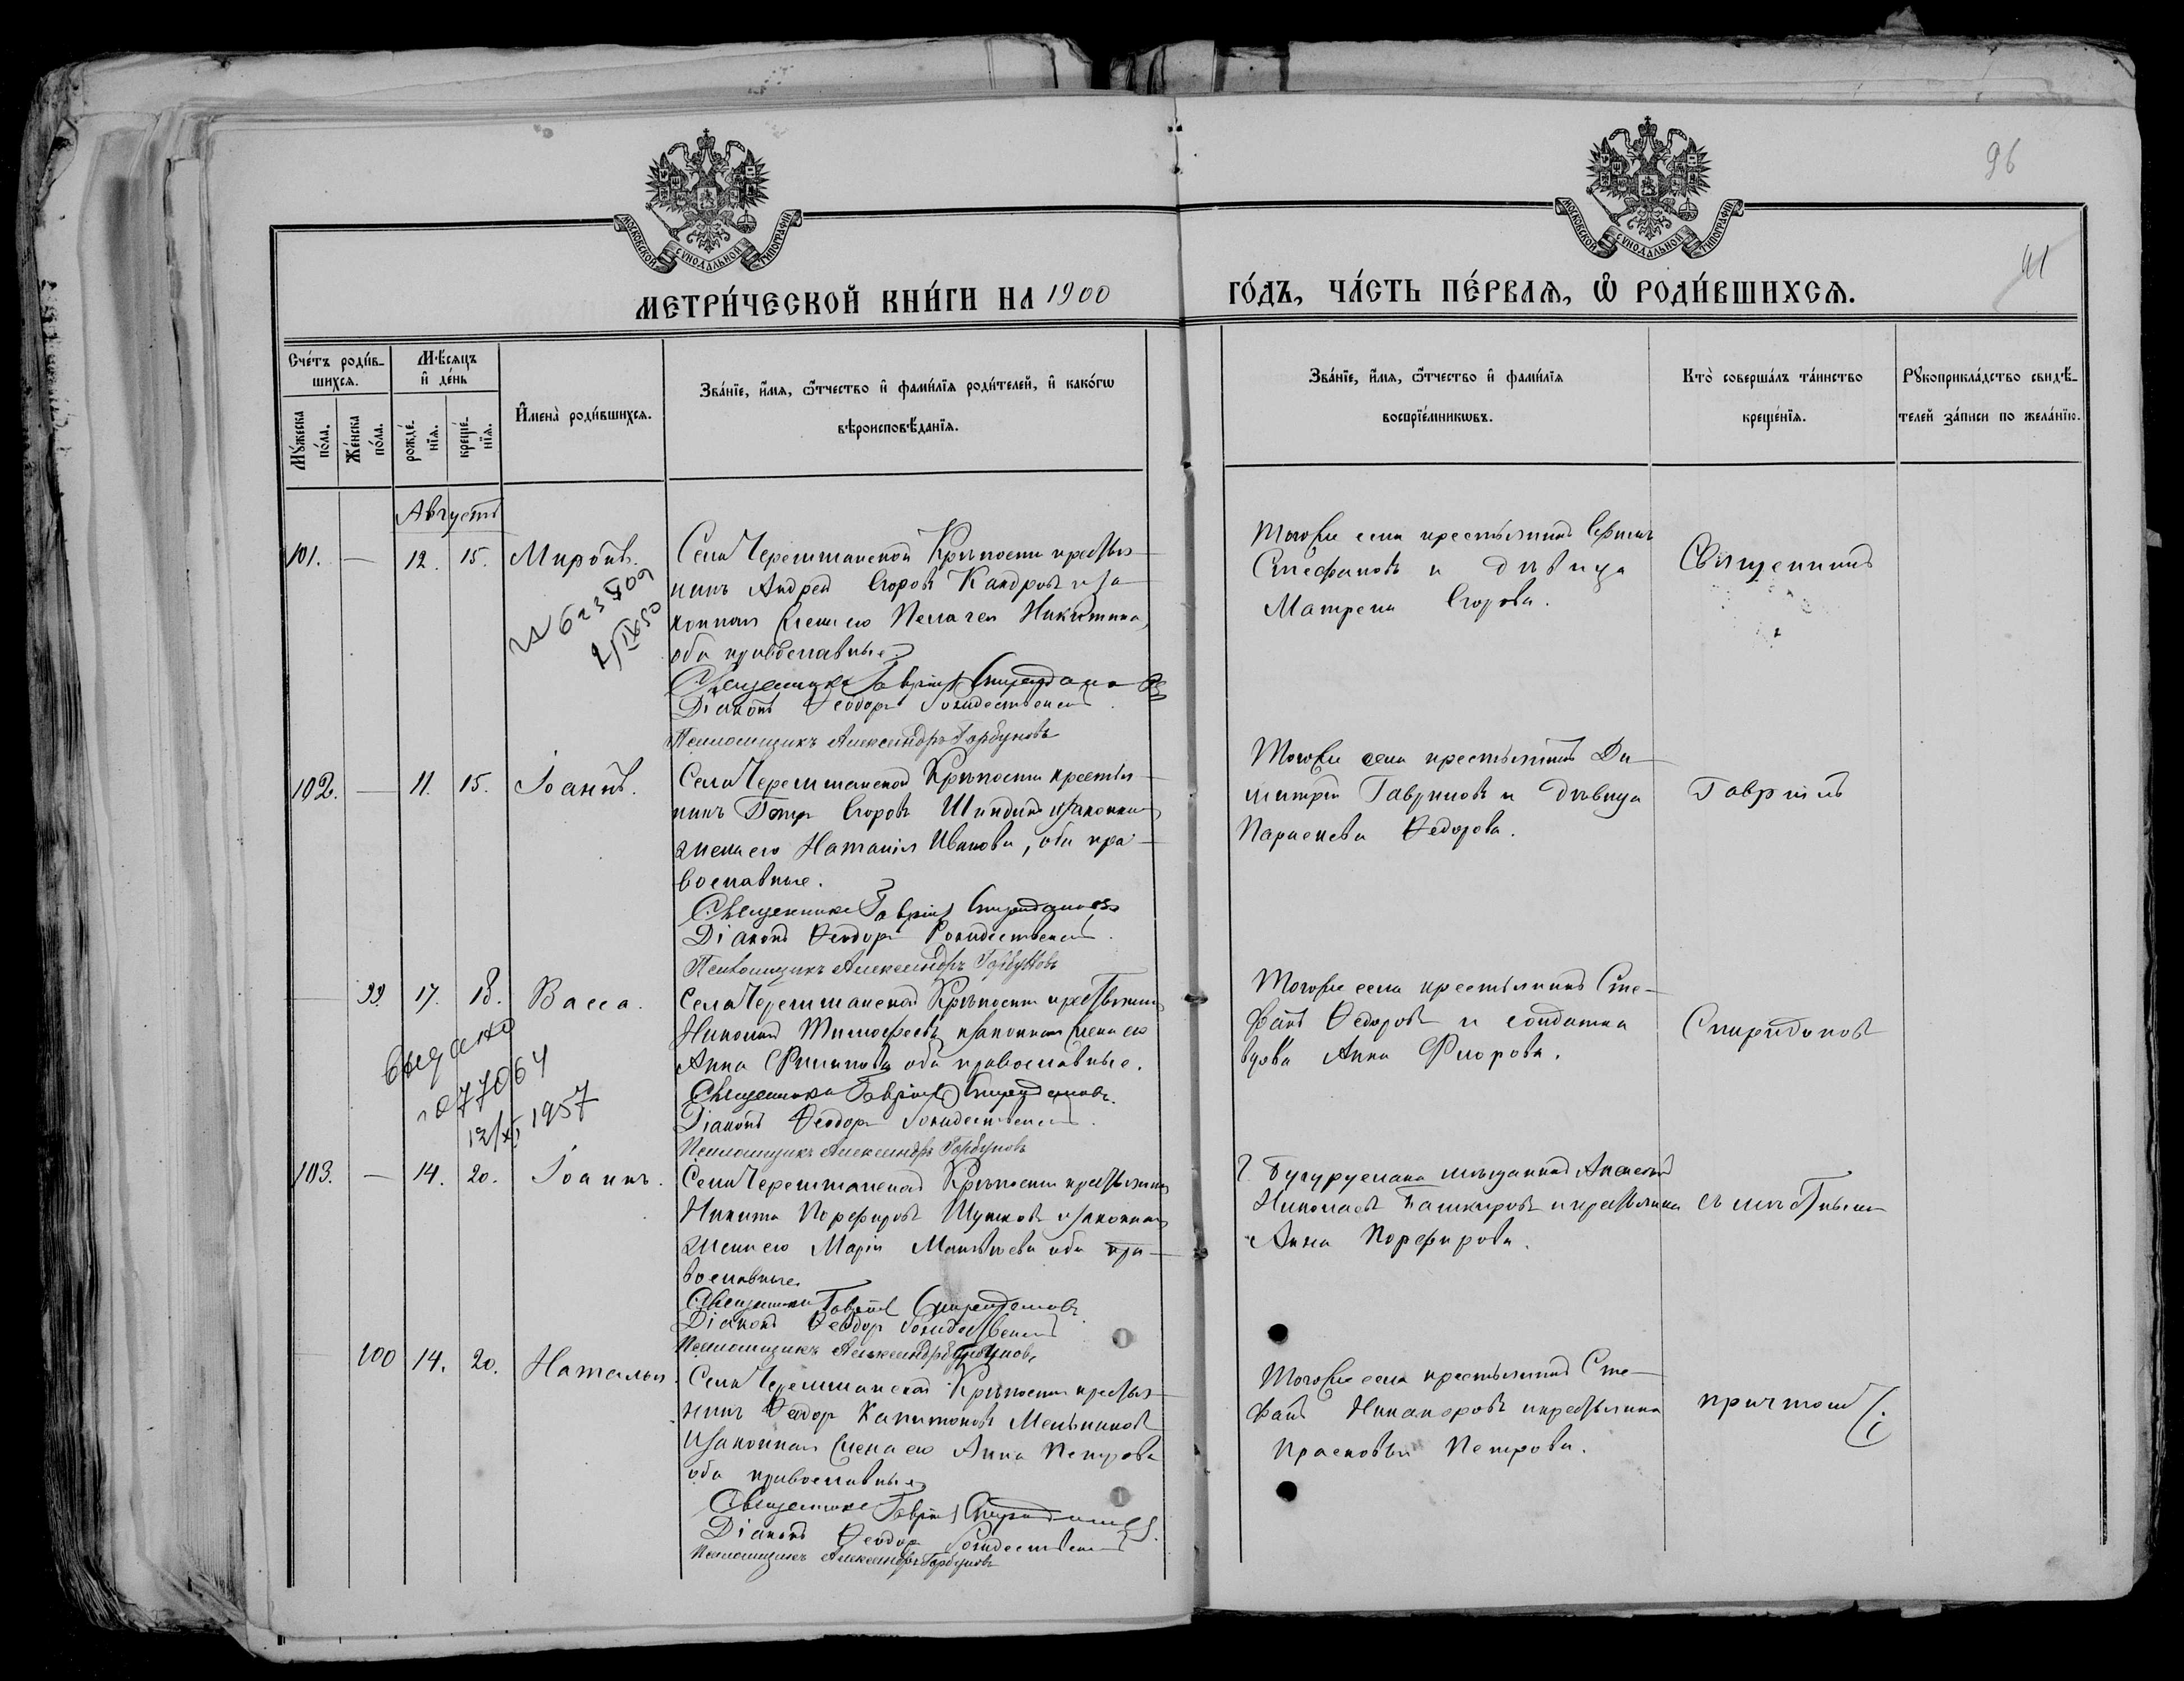 96
41
МОСКОВСКОЙ СѴНОДАЛЬНОЙ ТИПОГРАФІИ
МОСКОВСКОЙ СѴНОДАЛЬНОЙ ТИПОГРАФІИ
МЕТРИ́ЧЕСКОЙ КНИ́ГИ НА 1900
ГО́ДЪ, ЧА́СТЬ ПЕ́РВАѦ, Ѽ РОДИ́ВШИХСѦ.
Сче́тъ роди́в-
шихсѧ.
Мꙋ́жеска по́ла.
Же́нска по́ла.
Мѣ́сѧцъ
и҆ де́нь
рожде́-
нїѧ.
креще́-
нїѧ.
И҆мена̀ роди́вшихсѧ.
Зва́нїе, и҆́мѧ, ѻ҆́тчество и҆ фами́лїѧ роди́телей, и҆ како́гѡ
вѣроисповѣ́данїѧ.
Зва́нїе, и҆́мѧ, ѻ҆́тчество и҆ фами́лїѧ
воспрїе́мникѡвъ.
Кто̀ соверша́лъ та́инство
креще́нїѧ.
Рꙋкоприкла́дство свидѣ́-
телей за́писи по жела́нїю.
Августъ
101. — 12. 15. Миронъ.
Села Черемшанской Крѣпости крестья-
нинъ Андрей Егоровъ Кандровъ и за-
конная жена его Пелагея Никитина,
оба православные
Священникъ Гавріилъ Спиридоновъ
Діаконъ Ѳеодоръ Рождественскій.
Псаломщикъ Александръ Горбуновъ
Тогоже села крестьянинъ
Стефановъ и дѣвица
Матрена Егорова.
Священникъ
102. — 11. 15. Іоаннъ.
Села Черемшанской Крѣпости крестья-
нинъ Петръ Егоровъ Шиндинъ и законная
жена его Наталія Иванова, оба пра-
вославные.
Священникъ Гавріилъ Спиридоновъ
Діаконъ Ѳеодоръ Рождественскій.
Псаломщикъ Александръ Горбуновъ
Тогоже села крестьянинъ Ди-
митрій Гавриловъ и дѣвица
Параскева Ѳедорова.
Гавріилъ
— 99 17. 18. Васса.
выдано
№77064
12/XI 1957
Села Черемшанской Крѣпости крестьянинъ
Николай Тимофеевъ и законная жена его
Анна Филипова оба православные.
Священникъ Гавріилъ Спиридоновъ.
Діаконъ Ѳеодоръ Рождественскій.
Псаломщикъ Александръ Горбуновъ
Тогоже села крестьянинъ Сте-
фанъ Ѳедоровъ и солдатка
вдова Анна Флорова.
Спиридоновъ
103. — 14. 20. Іоаннъ.
Села Черемшанской Крѣпости крестьянинъ
Никита Порфировъ Шутковъ и законная
жена его Марія Матвѣева оба пра-
вославные
Священникъ Гавріилъ Спиридоновъ
Діаконъ Ѳеодоръ Рождественскій
Псаломщикъ Александръ Горбуновъ
Г. Бугуруслана мѣщанинъ Алексѣй
Николаевъ Башкировъ и крестьянка
Анна Порфирова.
съ мѣстнымъ
— 100 14. 20. Наталья.
Села Черемшанской Крѣпости крестья-
нинъ Ѳеодоръ Капитоновъ Мельниковъ
и законная жена его Анна Петрова
оба православные
Священникъ Гавріилъ Спиридоновъ.
Діаконъ Ѳеодоръ Рождественскій
Псаломщикъ Александръ Горбуновъ
Тогоже села крестьянинъ Сте-
фанъ Никаноровъ и крестьянка
Прасковья Петрова.
причтомъ